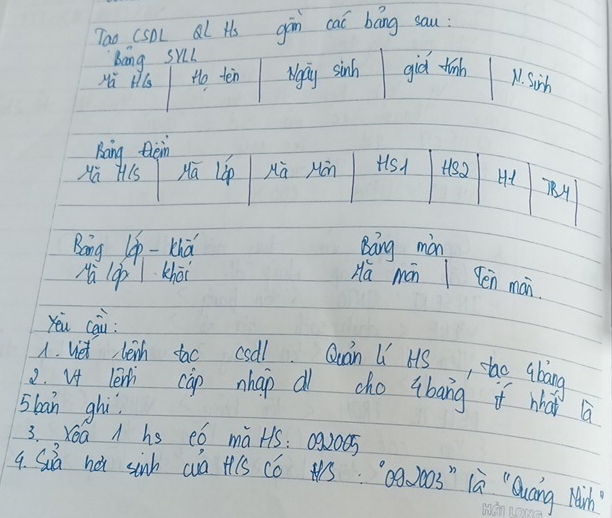 Tạo CSDL QL Hs gồm các bảng sau:
Bảng SYLL
Mã H/s | Họ tên | Ngày sinh | giới tính | N. Sinh
Bảng Điểm
Mã H/s | Mã lớp | Mã Môn | HS1 | HS2 | HL | TBM
Bảng lớp - khối
Mã lớp | khối
Bảng môn
Mã môn | Tên môn.
Yêu cầu:
1. Viết lệnh tạo csdl. Quản lí HS, tạo 4 bảng
2. Vt lệnh cập nhập dl cho 4 bảng ít nhất là
5 bản ghi.
3. Xoá 1 hs có mã HS: 092005
4. Sửa nơi sinh của H/S có H/S: "092003" là "Quảng Ninh"
HẢI LONG